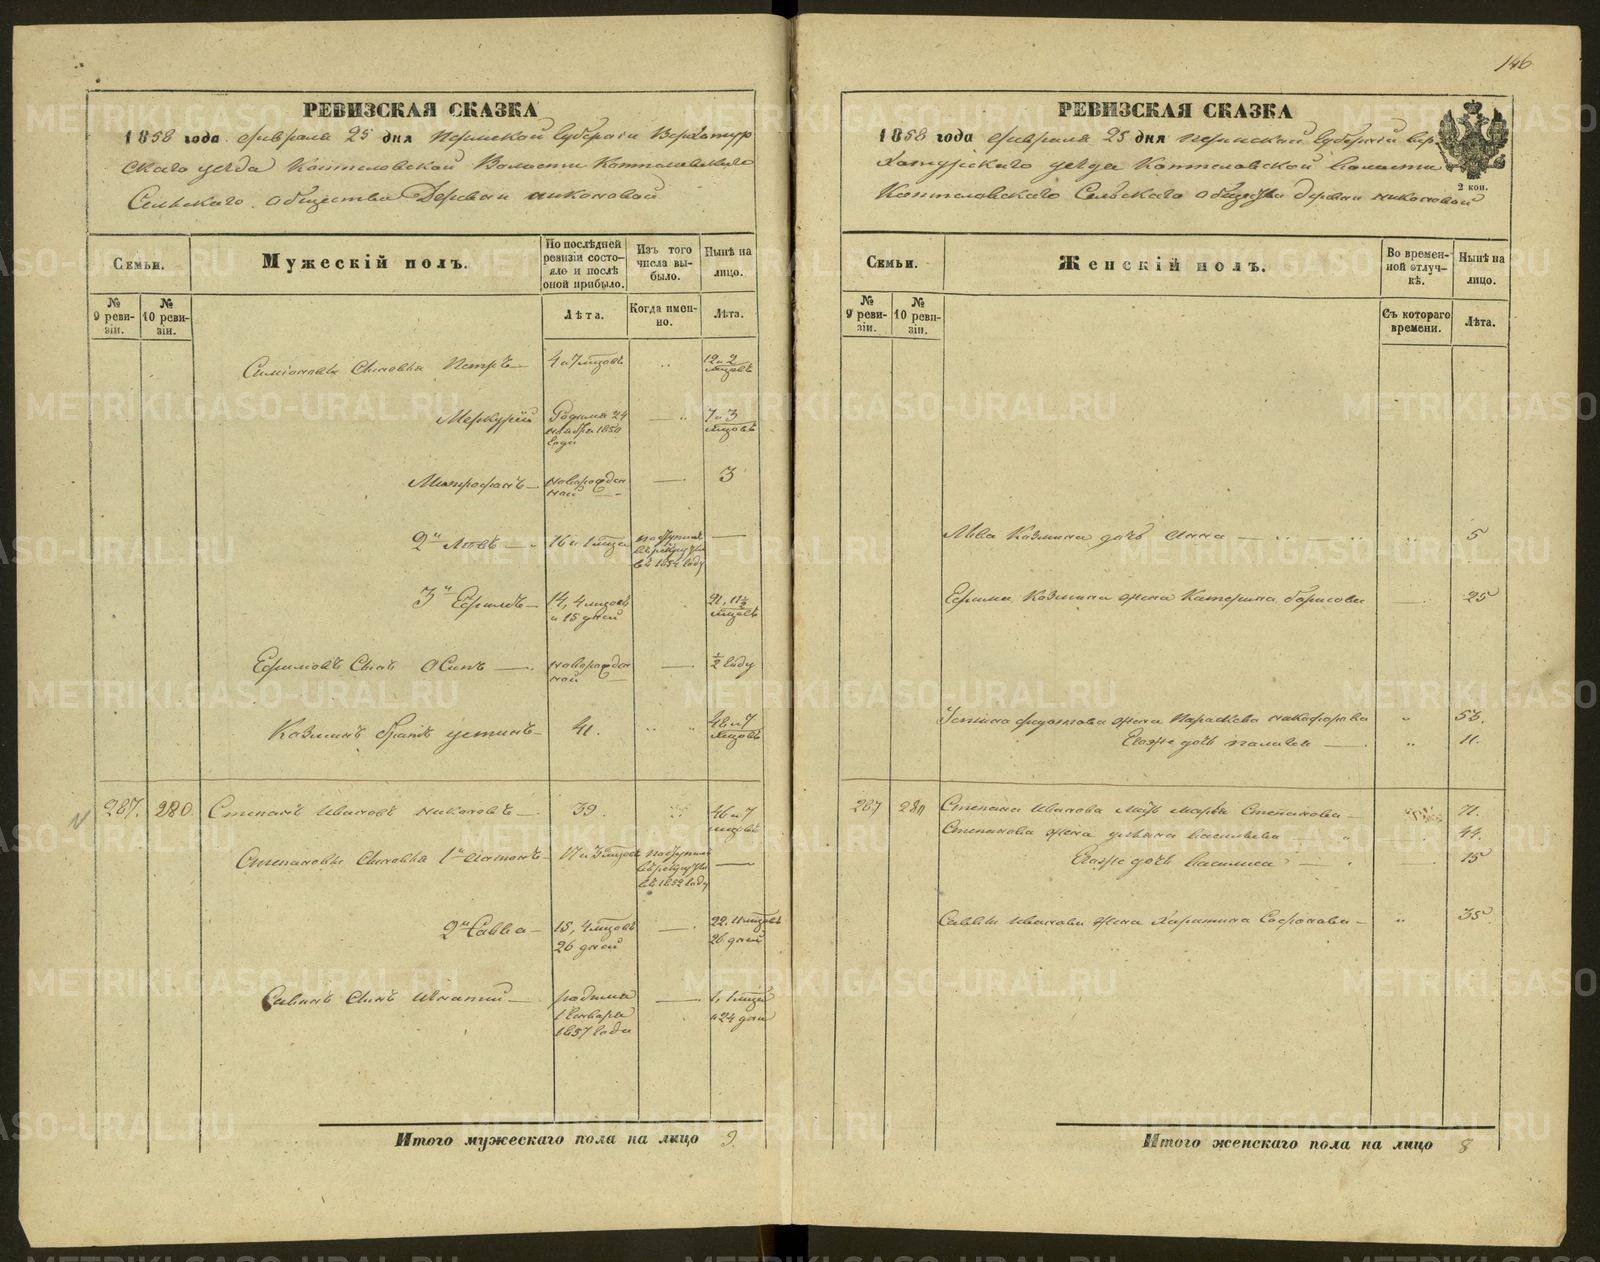 146
РЕВИЗСКАЯ СКАЗКА
1858 года февраля 25 дня Пермской Губернии Верхотур
скаго уезда Коптеловской Волости Коптеловскаго
Сельскаго общества Деревни Никоновой
Семьи.
Мужескій полъ.
По послѣдней
ревизіи состо-
яло и послѣ
оной прибыло.
Изъ того
числа вы-
было.
Нынѣ на
лицо.
№
9 реви-
зіи.
№
10 реви-
зіи.
Лѣта.
Когда имен-
но.
Лѣта.
Симіоновы Сыновья Петръ 4 и 7 мцовъ 12 и 2 мцовъ
Меркурій Родился 24 ноября 1850 года 7 и 3 мцовъ
Митрофанъ новорожден ной 3
2й Левъ 16 и 1 мца поступилъ въ рекруты въ 1854 году
3й Ефимъ 14, 4 мцовъ и 15 дней 21, 11½ мцовъ
Ефимовъ Сынъ Осипъ новорожден ной ½ году
Козминъ братъ Устинъ 41. 48 и 7 мцовъ
287. 280 Степанъ Ивановъ Никоновъ 39. 46 и 7 мцовъ
Степановы Сыновья 1й 17 и 3 мцовъ поступилъ въ рекруты въ 1852 году
2й Савва 15, 4 мцовъ 26 дней 22, 11 мцовъ 26 дней
Савинъ Сынъ Игнатий родился 1 Генваря 1857 года 1, 1 мцъ и 24 дня
Итого мужескаго пола на лицо 9.
РЕВИЗСКАЯ СКАЗКА
2 коп.
1858 года февраля 25 дня Пермской Губерний Вер
хотурскаго уезда Коптеловской Волости
Коптеловскаго Сельскаго общества деревни Никоновой
Семьи.
Женскій полъ.
Во времен-
ной отлуч-
кѣ.
Нынѣ на
лицо.
№
9 реви-
зіи.
№
10 реви-
зіи.
Съ котораго
времени.
Лѣта.
Льва Козмина дочь Анна 5
Ефима Козмина жена Катерина Борисова 25
Устина жена Парасковa Никифорова 52.
Егоже дочь Палагея 11.
287 280 Степана Иванова Мать Марья Степанова 71.
Степанова жена Ульяна Васильева 44.
Егоже дочь Василиса 15
Саввы Иванова жена Харитина Софронова 35
Итого женскаго пола на лицо 8
METRIKI.GASO-URAL.RU